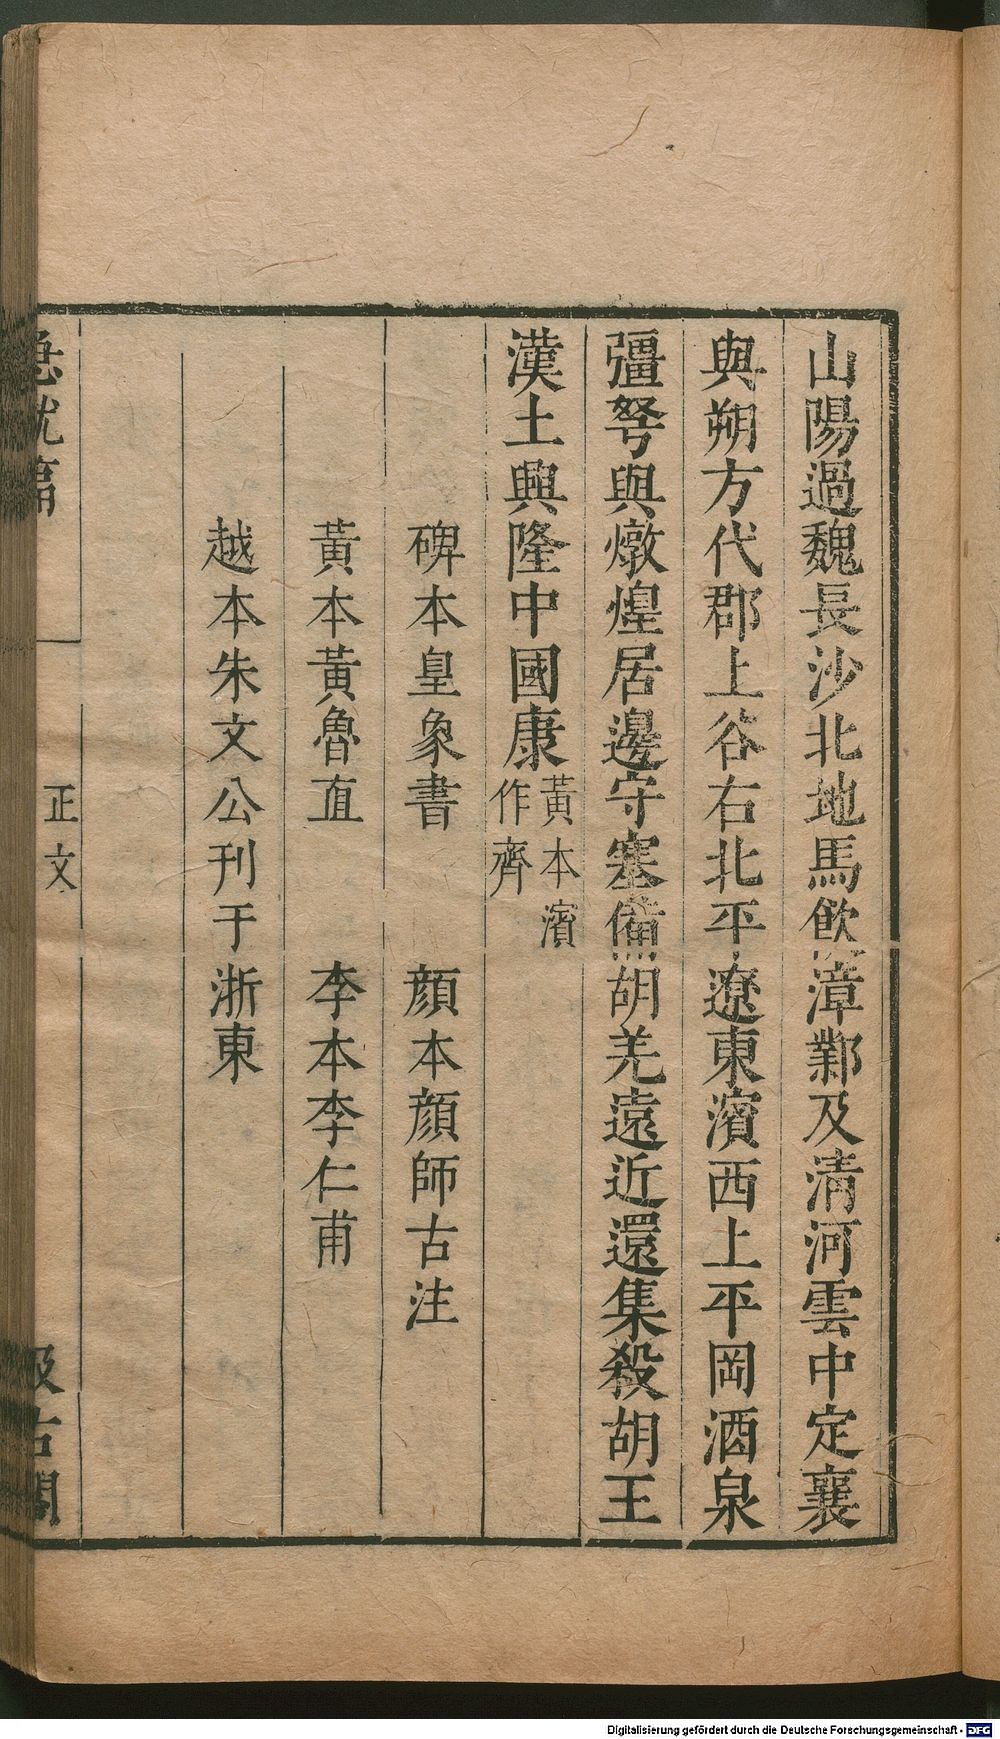 山陽過魏長沙北地馬飲漳鄴及清河雲中定襄
與朔方代郡上谷右北平遼東濱西上平岡酒泉
彊弩與燉煌居邊守塞備胡羌遠近還集殺胡王
漢土興隆中國康黃本濱作齊
碑本皇象書 顏本顏師古注
黃本黃魯直 李本李仁甫
越本朱文公刊于浙東
急就篇 正文 汲古閣
Digitalisierung gefördert durch die Deutsche Forschungsgemeinschaft - DFG